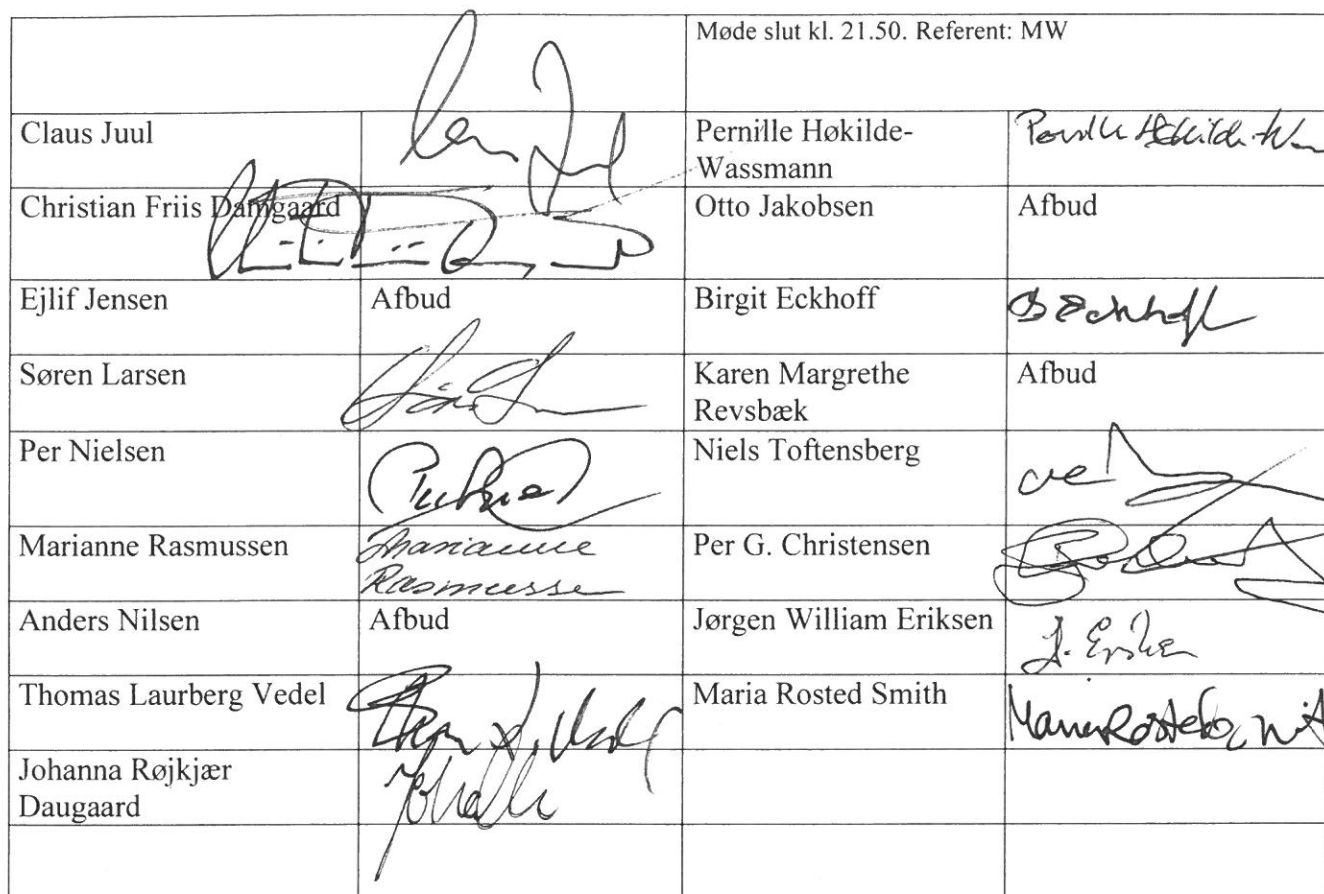 Møde slut kl. 21.50. Referent: MW
Claus Juul
Pernille Høkilde-
Wassmann
Christian Friis Damgaard
Otto Jakobsen
Afbud
Ejlif Jensen
Afbud
Birgit Eckhoff
B Eckhoff
Søren Larsen
Karen Margrethe
Revsbæk
Afbud
Per Nielsen
Niels Toftensberg
Marianne Rasmussen
Marianne
Rasmusse
Per G. Christensen
Anders Nilsen
Afbud
Jørgen William Eriksen
J. Eriksen
Thomas Laurberg Vedel
Maria Rosted Smith
Johanna Røjkjær
Daugaard